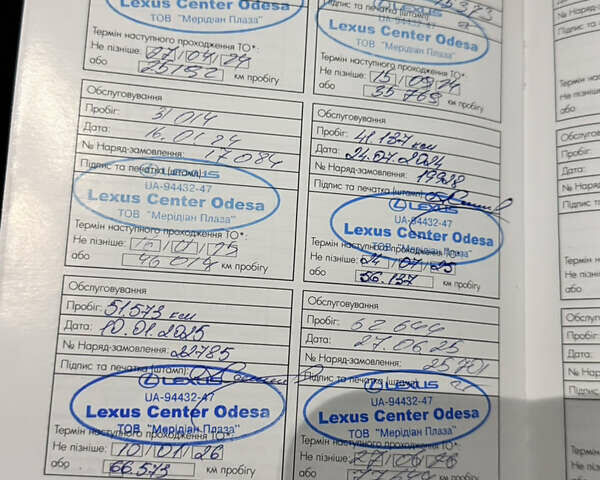 Lexus Center Odesa
ТОВ "Мерідіан Плаза"
Термін наступного проходження ТО*:
Не пізніше: 27/04/24
або 25152 км пробігу
Підпис та печатка (штамп):
LEXUS
UA-94432-47
Lexus Center Odesa
ТОВ "Мерідіан Плаза"
Термін наступного проходження ТО*:
Не пізніше: 15/09/24
або 35 763 км пробігу
Обслуговування
Пробіг: 31 014
Дата: 16.01.24
№ Наряд-замовлення: 17084
Підпис та печатка (штамп):
LEXUS
UA-94432-47
Lexus Center Odesa
ТОВ "Мерідіан Плаза"
Термін наступного проходження ТО*:
Не пізніше: 16/01/25
або 46 014 км пробігу
Обслуговування
Пробіг: 41.137 км
Дата: 24.07.2024
№ Наряд-замовлення: 19928
Підпис та печатка (штамп):
LEXUS
UA-94432-47
Lexus Center Odesa
ТОВ "Мерідіан Плаза"
Термін наступного проходження ТО*:
Не пізніше: 24/07/25
або 56.137 км пробігу
Обслуговування
Пробіг: 51.573 км
Дата: 10.01.2025
№ Наряд-замовлення: 22785
Підпис та печатка (штамп):
LEXUS
UA-94432-47
Lexus Center Odesa
ТОВ "Мерідіан Плаза"
Термін наступного проходження ТО*:
Не пізніше: 10/01/26
або 66.573 км пробігу
Обслуговування
Пробіг: 62 644
Дата: 27.06.25
№ Наряд-замовлення: 25701
Підпис та печатка (штамп):
LEXUS
UA-94432-47
Lexus Center Odesa
ТОВ "Мерідіан Плаза"
Термін наступного проходження ТО*:
Не пізніше: 27/06/26
або 77644 км пробігу
№ Наряд-
Підпис та
Термін н
Не пізніше
або
Обслуго
Пробіг:
Дата:
№ Наряд
Підпис та
Термін
Не пізні
або
Обслу
Пробіг
Дата:
№ Нар
Підпи
Термі
Не п
або